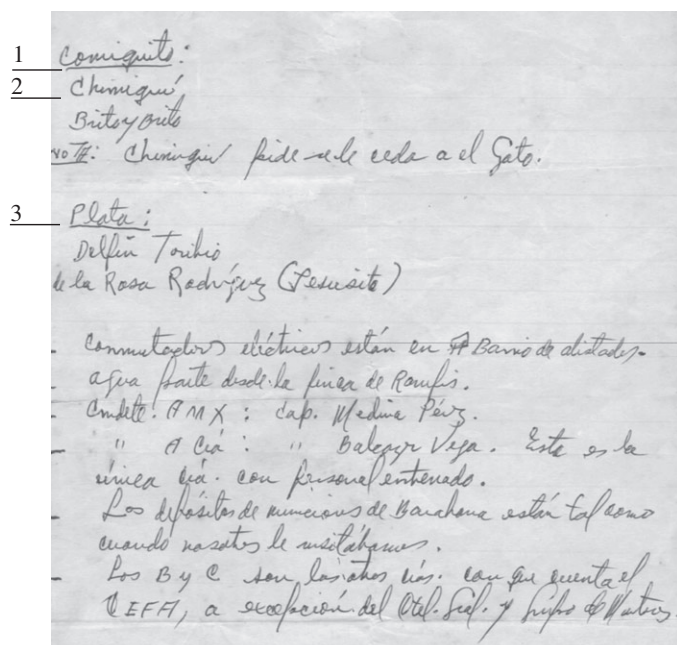 1 Comiquito:
2 Chimiquí,
Brito y Brito
NOTA: Chimiquí pide se le ceda a el Gato.
3 Plata:
Delfín Toribio
de la Rosa Rodríguez (Jesusito)
- Conmutadores eléctricos están en Barrio de alistados.
- agua parte desde la finca de Ramfis.
- Cmdte. AMX: Cap. Medina Pérez.
- " A Cía: " Balcácer Vega. Esta es la
única Cía. con personal entrenado.
- Los depósitos de municiones de Barahona están tal como
cuando nosotros le visitábamos.
- Los B y C son las otras Cías. con que cuenta el
CEFA, a excepción del Ctel. Gral. y Grupo de Morteros.